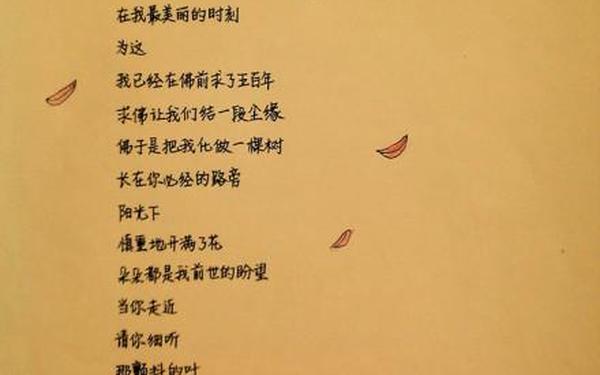 在我最美丽的时刻
为这
我已经在佛前求了五百年
求佛让我们结一段尘缘
佛于是把我化做一棵树
长在你必经的路旁
阳光下
慎重地开满了花
朵朵都是我前世的盼望
当你走近
请你细听
那颤抖的叶